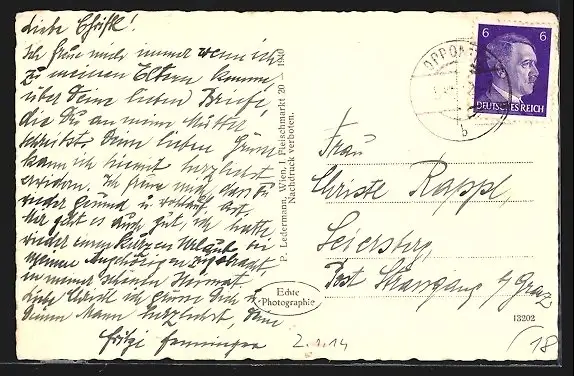 Liebe Christl!
Ich freue mich immer wenn ich
zu meinen Eltern komme
über Deine lieben Briefe,
die Du an meine Mutter
schreibst. Deine lieben Grüße
kann ich hiermit herzlichst
erwidern. Ich freue mich, dass Du
wieder gesund u. wohlauf bist.
Mir geht es auch gut, ich hatte
wieder einen kurzen Urlaub bei
meinen Angehörigen
in meiner schönen Heimat.
Liebe Christl ich grüsse Dich u.
Deinen Mann herzlichst, Deine
Fritzi
P. Ledermann, Wien, I Fleischmarkt 20 - 1940
Nachdruck verboten.
Echte
Photographie
6 6
DEUTSCHES REICH
OPPON
b
Frau
Christe Rappl,
Seiersberg,
Post Strassgang b/ Graz
13202
2.1.14
(18